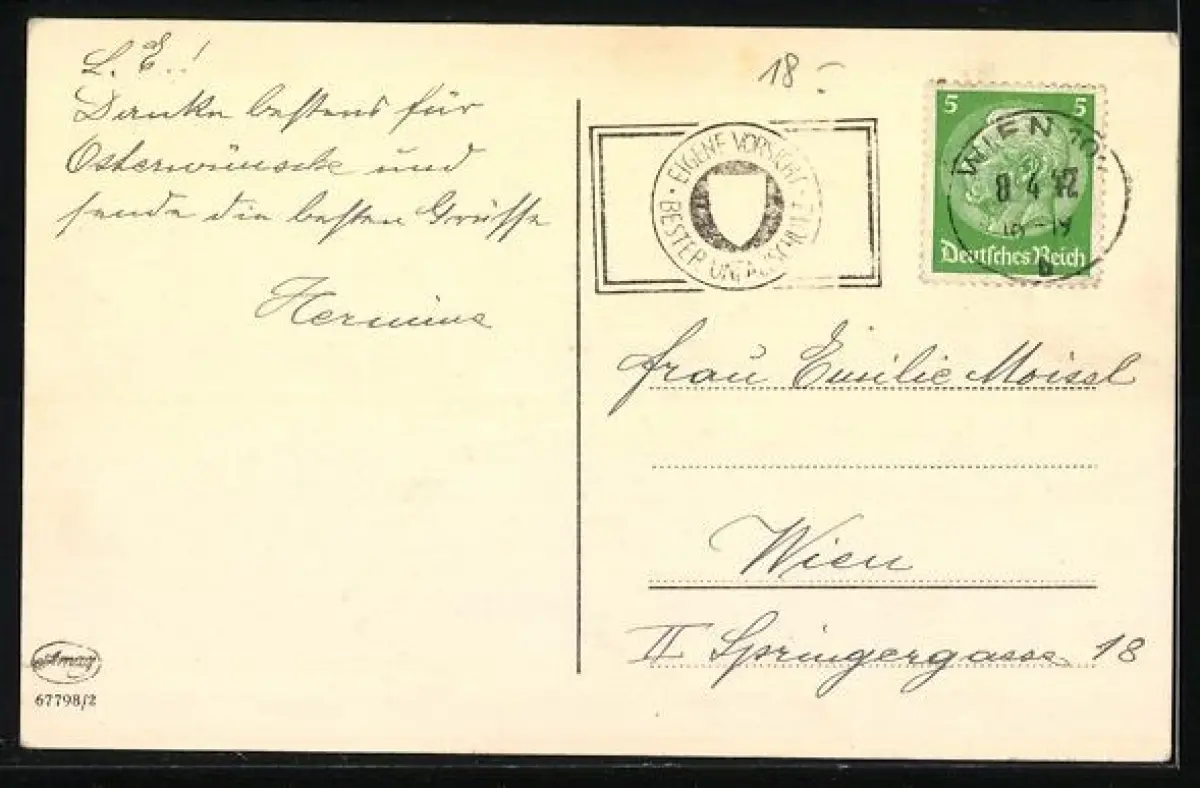 L. E.!
Danke bestens für
Osterwünsche und
sende die besten Grüsse
Hermine
18.-
EIGENE VORSICHT · BESTER UNFALLSCHUTZ ·
5 5
Deutsches Reich
WIEN
8 4 42
Frau Emilie Moissl
Wien
II Springergasse 18
Amag
67798/2